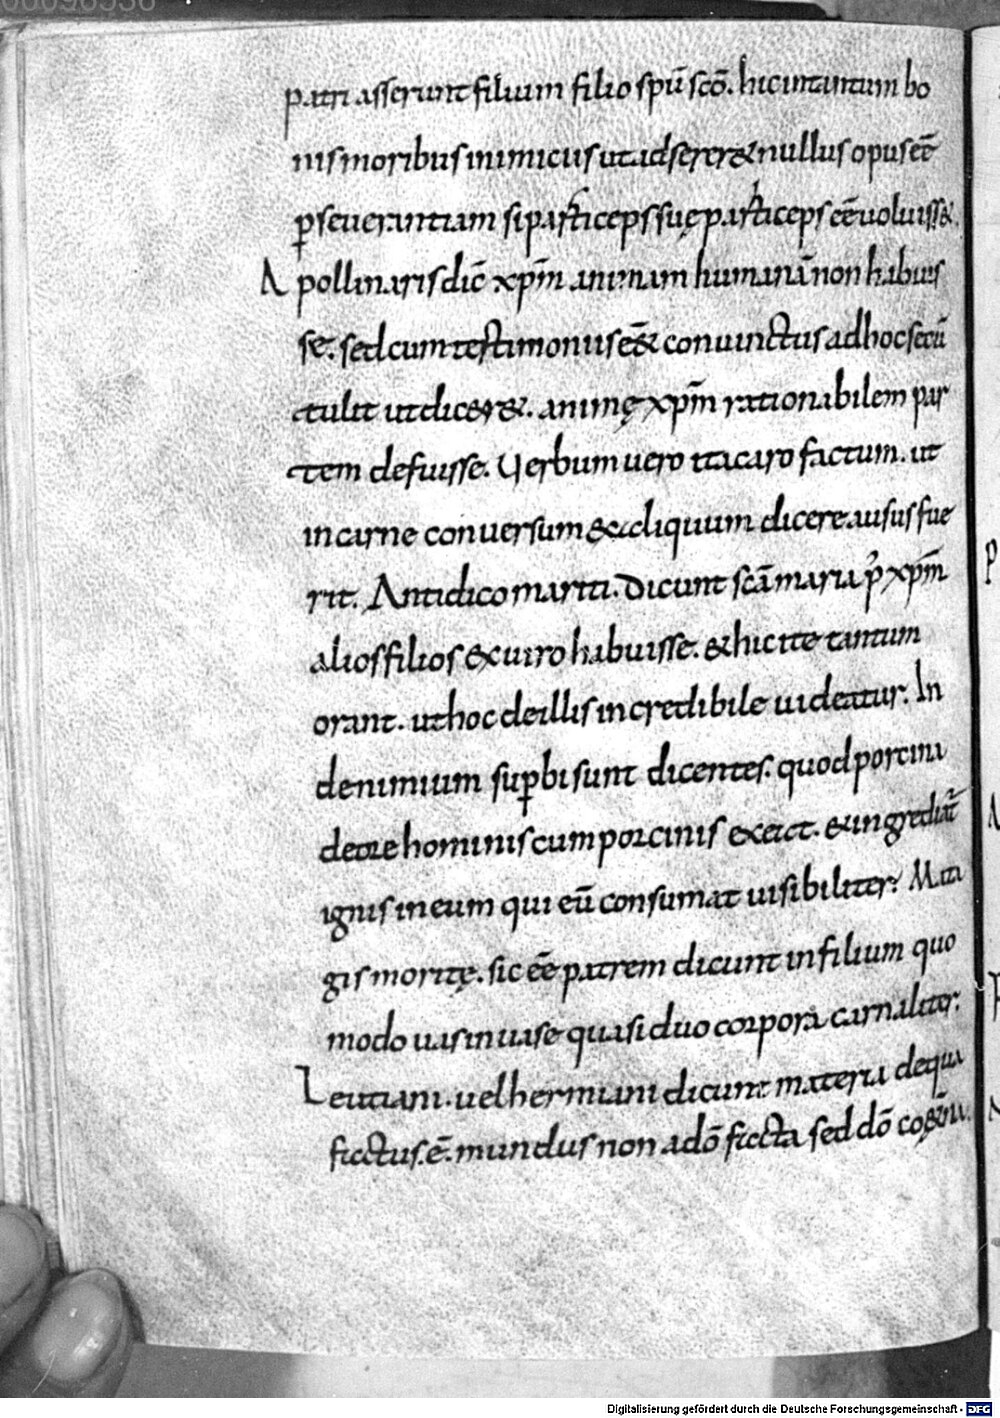 patri asserunt filium filio spū scō. hic intantum bo
nis moribus inimicus ut adsereret nullus opus eē
pseuerantiam si particeps suę particeps eē uoluisset.
Apollinaris dic̄ xp̄m animam humanā non habuis
se. sed cum testimoniis eēt conuinctus ad hoc secū
tulit ut diceret. animę xp̄m rationabilem par
tem defuisse. Uerbum uero ita caro factum. ut
in carne conuersum et aliquum dicere ausus fue
rit. Antidicomariti. Dicunt scā maria p̄ xp̄m
alios filios ex uiro habuisse. et hic ite tantum
orant. ut hoc de illis incredibile uideatur. In
de nimium supbi sunt dicentes. quod porcini
de ore hominis cum porcinis exeat. et ingrediat̄
ignis in eum qui eū consumat uisibiliter. Mati
gis moritę. sic eē patrem dicunt in filium quo
modo uas in uase quasi duo corpora carnaliter.
Leutiani. uel hermiani dicunt materia de qua
fictus. ē. mundus non a dō ficta sed dō